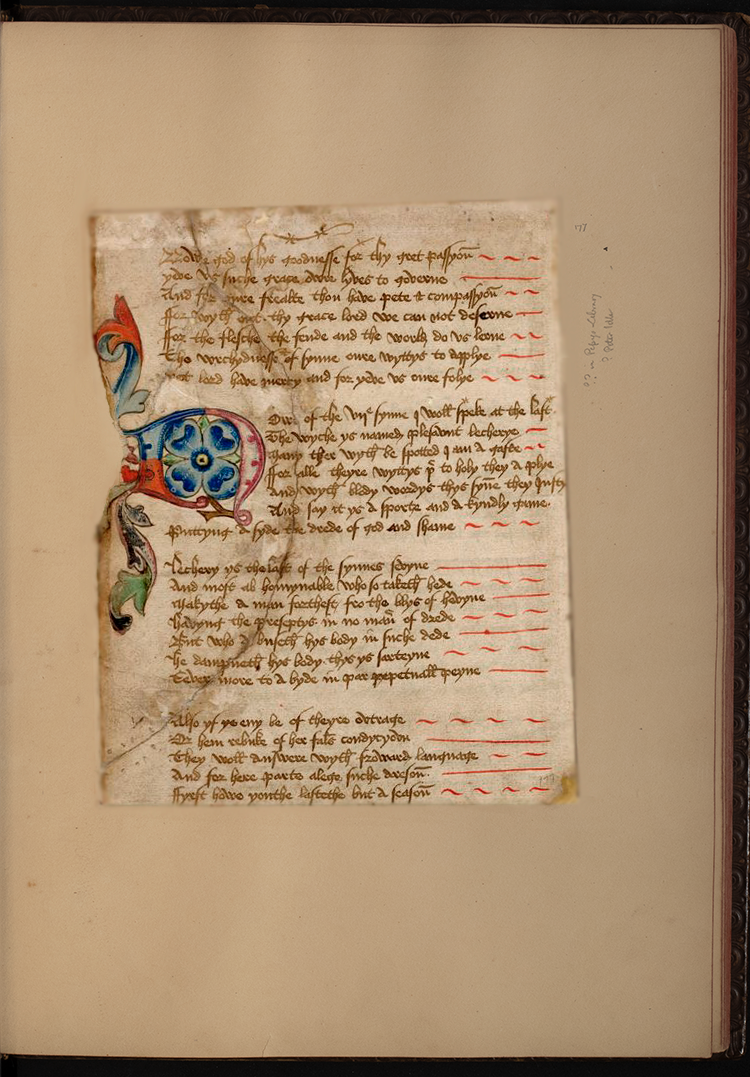 Nowe god of hys goodnesse for thy gret passyon
yeve vs suche grace owre lyves to governe
And for owre frealte thou have pete & compassyon
ffor wyth owt thy grace lord we can not deserne
ffor the flesche the fende and the world do vs lerne
The wrechydnesse of synne owre wyttys to applye
lord have mercy and for yeve vs oure folye
Owe of the vijᵉ synne I woll speke at the last
The wyche ys named plesaunt lecherye
Many ther wyth be spotted I am a gaste
ffor alle theyre wyttys to holy they a plye
And wyth body wordys thys syne they
And say it ys a sporte and a kyndly game
Puttyng a syde the drede of god and shame
Lechery ys the last of the synnes sevyne
And most ab homynable who so taketh hede
Makythe a man forthest fro the blys of hevyne
Havyng the preseptys in no man of drede
But who A buseth hys body in suche dede
he dampneth hys body thys ys sarteyne
Ever more to a byde in perpetuall peyne
Also yf ye eny be of theyre dotrage
Or hem rebuke of her fals condycyon
They woll answere wyth froward language
And for here parte alege suche a reson
ffyrst howe youthe lastethe but a season
177
?? in Pepys Library
? Peter Idle